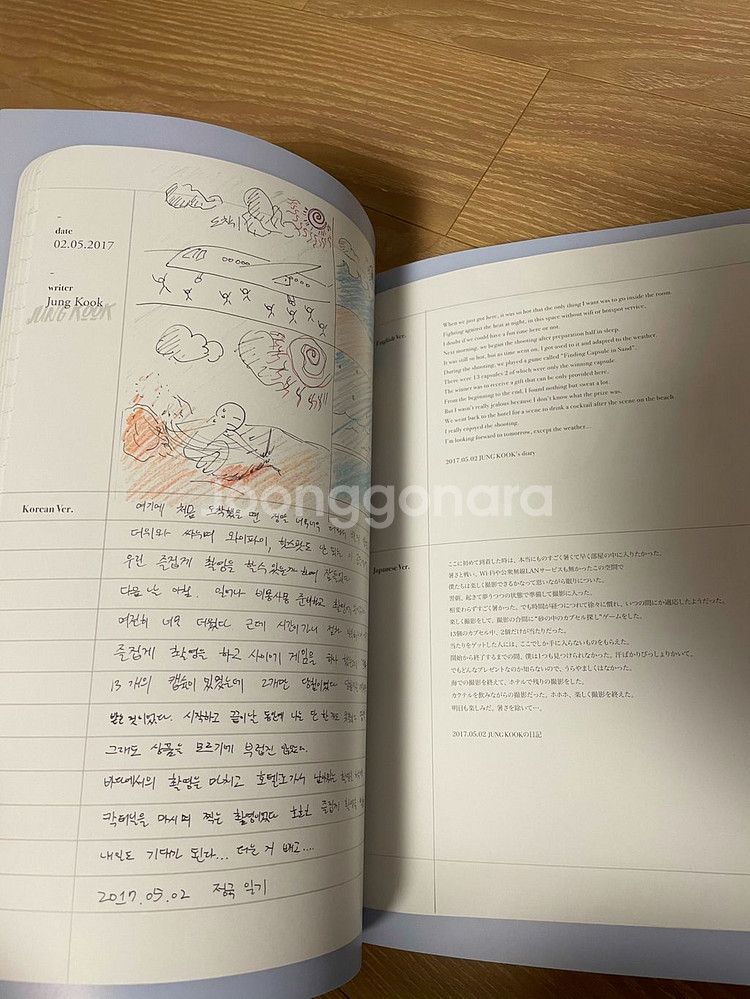 date
02.05.2017
writer
Jung Kook
JUNG KOOK
도착!
Korean Ver.
여기에 처음 도착했을 땐 정말 너무너무
더위와 싸우며 와이파이, 핫스팟도 안 되는 이
우린 즐겁게 촬영을 할 수 있을까 하며 잠들었다
다음 날 아침. 일어나 비몽사몽 준비하고 촬영
여전히 너무 더웠다 근데 시간이 가니 점차
즐겁게 촬영을 하고 사이에 게임을 하나
13개의 캡슐이 있었는데 2개만 당첨이었다
받는 것이었다. 시작하고 끝이날 동안에 나는 단 한개도
그래도 상품을 모르기에 부럽진 않았다.
바다에서의 촬영을 마치고 호텔로 가서 남아있는
칵테일을 마시며 찍는 촬영이었다 호호호 즐겁게
내일도 기대가 된다... 더운 거 빼고....
2017.05.02 정국 일기
English Ver.
When we just got here, it was so hot that the only thing I want was to go inside the room.
Fighting against the heat at night, in this space without wifi or hotspot service,
I doubt if we could have a fun time here or not.
Next morning, we began the shooting after preparation half in sleep.
It was still so hot, but as time went on, I got used to it and adapted to the weather.
During the shooting, we played a game called "Finding Capsule in Sand".
There were 13 capsules 2 of which were only the winning capsule.
The winner was to receive a gift that can be only provided here.
From the beginning to the end, I found nothing but sweat a lot.
But I wasn't really jealous because I don't know what the prize was.
We went back to the hotel for a scene to drink a cocktail after the scene on the beach.
I really enjoyed the shooting.
I'm looking forward to tomorrow, except the weather...
2017.05.02 JUNG KOOK's diary
Japanese Ver.
ここに初めて到着した時は、本当にものすごく暑くて早く部屋の中に入りたかった。
暑さと戦い、Wi-Fiや公衆無線LANサービスも無かったこの空間で
僕たちは楽しく撮影できるかなって思いながら眠りについた。
翌朝、起きて夢うつつの状態で準備して撮影に入った。
相変わらずすごく暑かった。でも時間が経つにつれて徐々に慣れ、いつの間にか適応したようだった。
楽しく撮影をして、撮影の合間に"砂の中のカプセル探し"ゲームをした。
13個のカプセル中、2個だけが当たりだった。
当たりをゲットした人には、ここでしか手に入らないものをもらえた。
開始から終了するまでの間、僕は1つも見つけられなかった。汗ばかりびっしょりかいて。
でもどんなプレゼントなのか知らないので、うらやましくはなかった。
海での撮影を終えて、ホテルで残りの撮影をした。
カクテルを飲みながらの撮影だった。ホホホ、楽しく撮影を終えた。
明日も楽しみだ。暑さを除いて…。
2017.05.02 JUNG KOOKの日記
joonggonara